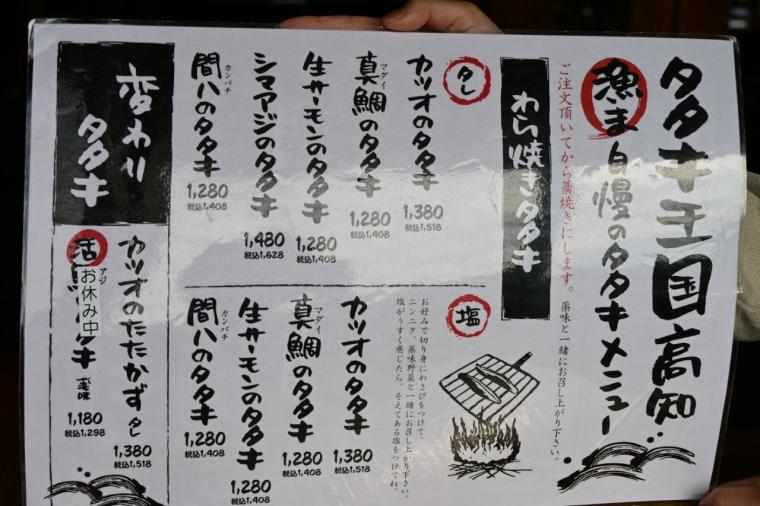 タタキ王国高知
漁ま自慢のタタキメニュー
ご注文頂いてから藁焼きにします。
薬味と一緒にお召し上がり下さい。
わら焼きタタキ
タレ
カツオのタタキ
1,380
税込1,518
マダイ
真鯛のタタキ
1,280
税込1,408
生サーモンのタタキ
1,280
税込1,408
シマアジのタタキ
1,480
税込1,628
カンパチ
間八のタタキ
1,280
税込1,408
塩
お好みで切り身にわさびをつけて、
ニンニク、薬味野菜と一緒にお召し上がり下さい。
塩がうすく感じたら、そえてある塩をつけてね。
カツオのタタキ
1,380
税込1,518
マダイ
真鯛のタタキ
1,280
税込1,408
生サーモンのタタキ
1,280
税込1,408
カンパチ
間八のタタキ
1,280
税込1,408
変わり
タタキ
カツオのたたかず タレ
1,380
税込1,518
アジ
活 タキ 薬味
お休み中
1,180
税込1,298